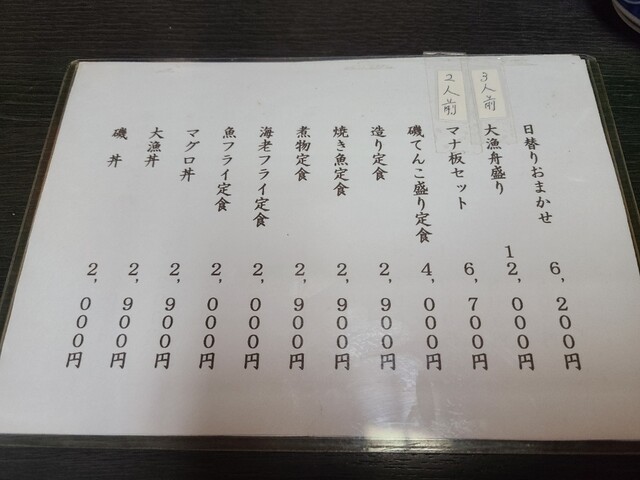 日替りおまかせ　6,200円
3人前
大漁舟盛り　12,000円
2人前
マナ板セット　6,700円
磯てんこ盛り定食　4,000円
造り定食　2,900円
焼き魚定食　2,900円
煮物定食　2,900円
海老フライ定食　2,000円
魚フライ定食　2,000円
マグロ丼　2,900円
大漁丼　2,900円
磯丼　2,000円